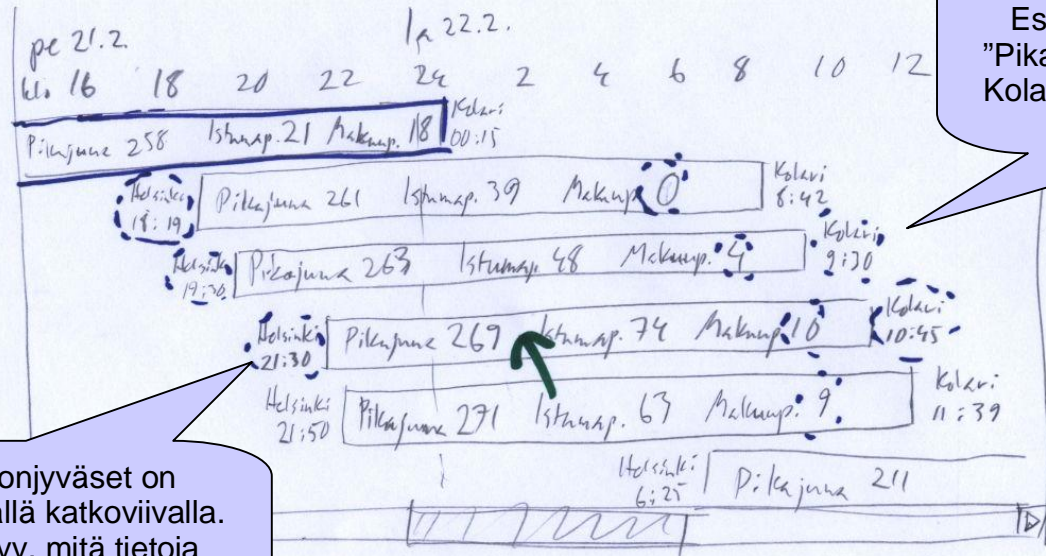 pe 21.2.
la 22.2.
klo 16 18 20 22 24 2 4 6 8 10 12
Pikajuna 258 Istumap. 21 Makuup. 18
Kolari
00:15
Helsinki
18:19
Pikajuna 261 Istumap. 39 Makuup. 0
Kolari
8:42
Helsinki
19:30
Pikajuna 263 Istumap. 48 Makuup. 4
Kolari
9:30
Helsinki
21:30
Pikajuna 269 Istumap. 74 Makuup. 10
Kolari
10:45
Helsinki
21:50
Pikajuna 271 Istumap. 63 Makuup. 9
Kolari
11:39
Helsinki
6:25
Pikajuna 211
Es
"Pika
Kola
onjyväset on
ällä katkoviivalla.
yy, mitä tietoja